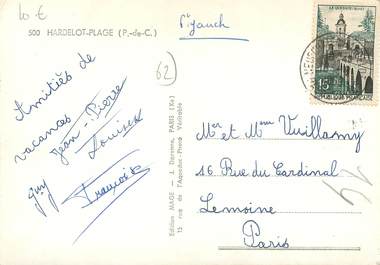 10 €
500 HARDELOT-PLAGE (P.-de-C.)
62
Amitiés de
vacances
Jean-Pierre
Louisex
guy
Francoise
Edition MAGE — J. Barrière, PARIS (Xe)
15 rue de l'Aqueduc-Photo Véritable
LE QUESNOY (NORD)
15F
REPUBLIQUE FRANÇAISE
Mr et Mme Vuillamy
16 Rue du Cardinal
Lemoine
Paris